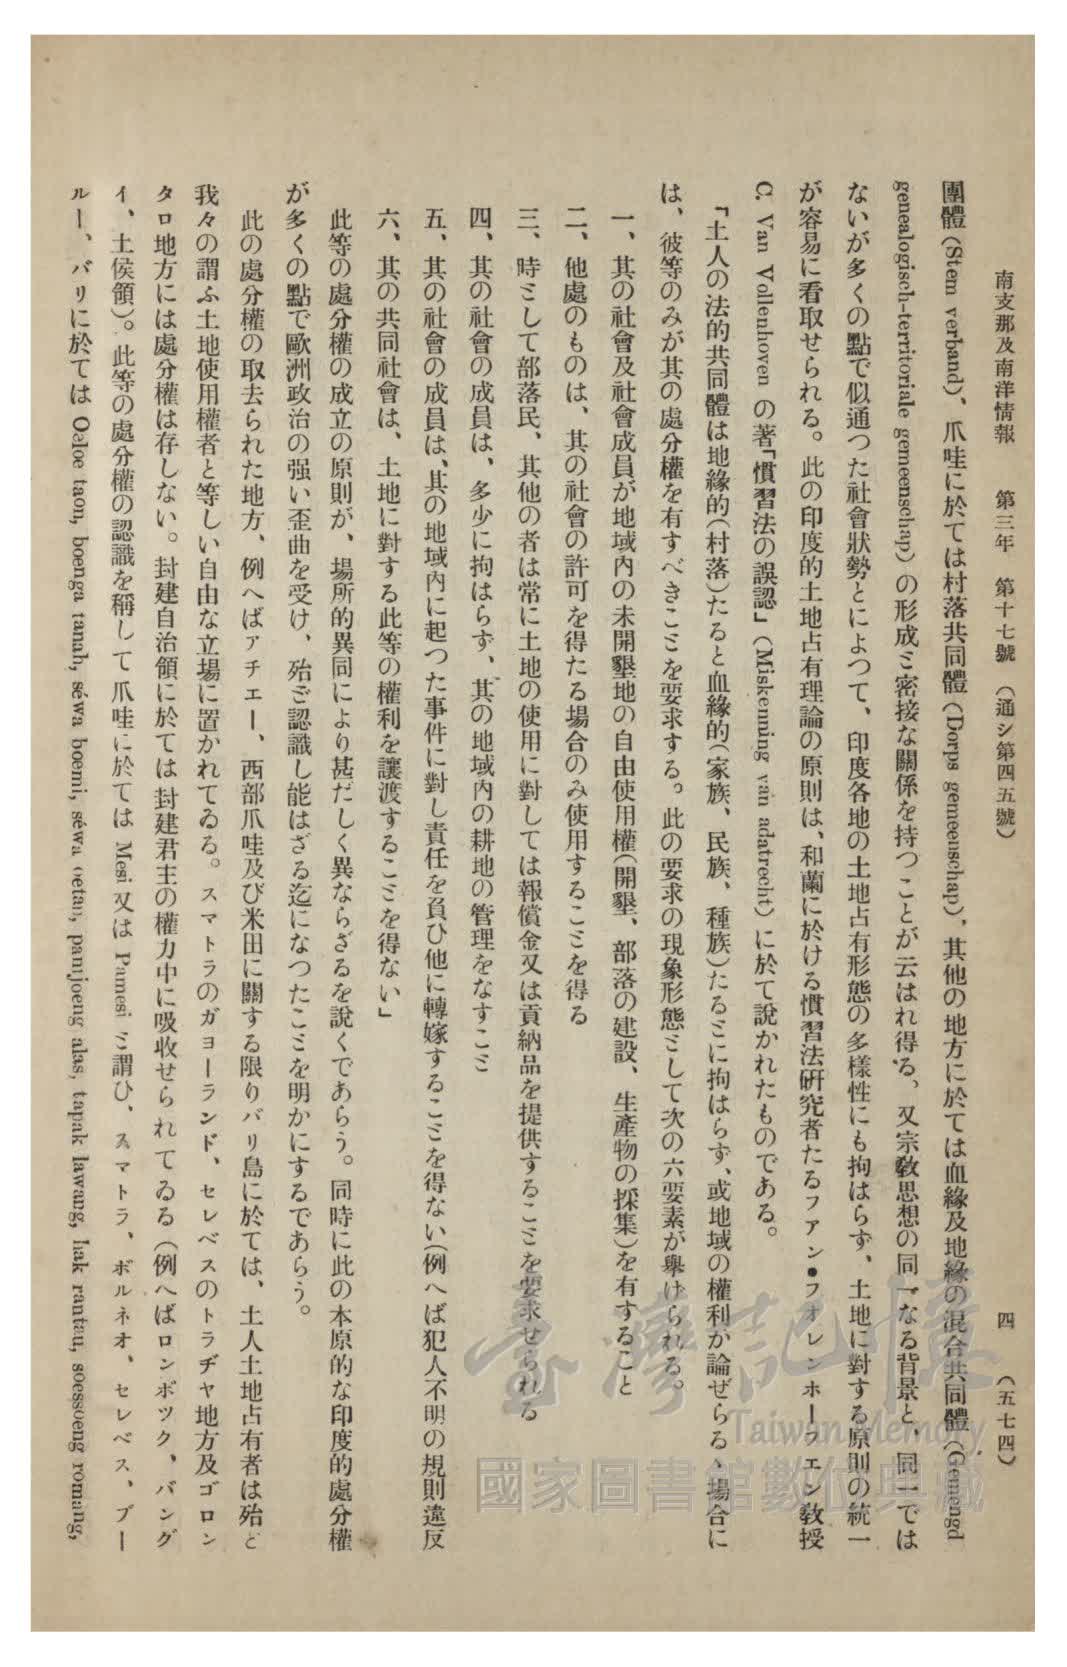 南支那及南洋情報　第三年　第十七號　（通シ第四五號）　四　（五七四）
團體（Stem verband）、爪哇に於ては村落共同體（Dorps gemeenschap）、其他の地方に於ては血緣及地緣の混合共同體（Gemengd
genealogisch-territoriale gemeenschap）の形成ミ密接な關係を持つことが云はれ得る。又宗敎思想の同一なる背景と、同一では
ないが多くの點で似通つた社會狀勢とによつて、印度各地の土地占有形態の多樣性にも拘はらず、土地に對する原則の統一
が容易に看取せられる。此の印度的土地占有理論の原則は、和蘭に於ける慣習法硏究者たるファン●フオレンホーフエン敎授
C. Van Vollenhoven の著「慣習法の誤認」（Miskenning van adatrecht）に於て說かれたものである。
「土人の法的共同體は地緣的（村落）たると血緣的（家族、民族、種族）たるミに拘はらず、或地域の權利が論ぜらるゝ場合に
は、彼等のみが其の處分權を有すべきこミを要求する。此の要求の現象形態ミして次の六要素が舉げられる。
一、其の社會及社會成員が地域內の未開墾地の自由使用權（開墾、部落の建設、生產物の採集）を有すること
二、他處のものは、其の社會の許可を得たる場合のみ使用するこミを得る
三、時ミして部落民、其他の者は常に土地の使用に對しては報償金又は貢納品を提供するこミを要求せられる
四、其の社會の成員は、多少に拘はらず、其の地域內の耕地の管理をなすこミ
五、其の社會の成員は、其の地域內に起つた事件に對し責任を負ひ他に轉嫁するこミを得ない（例へば犯人不明の規則違反
六、其の共同社會は、土地に對する此等の權利を讓渡するこミを得ない」
此等の處分權の成立の原則が、場所的異同により甚だしく異ならざるを說くであらう。同時に此の本原的な印度的處分權
が多くの點で歐洲政治の强い歪曲を受け、殆ご認識し能はざる迄になつたこミを明かにするであらう。
此の處分權の取去られた地方、例へばアチエー、西部爪哇及び米田に關する限りバリ島に於ては、土人土地占有者は殆ど
我々の謂ふ土地使用權者と等しい自由な立場に置かれてゐる。スマトラのガヨーランド、セレベスのトラヂヤ地方及ゴロン
タロ地方には處分權は存しない。封建自治領に於ては封建君主の權力中に吸收せられてゐる（例へばロンボツク、バング
イ、土侯領）。此等の處分權の認識を稱して爪哇に於ては Mesi 又は Pamesi ミ謂ひ、スマトラ、ボルネオ、セレベス、ブー
ルー、バリに於ては Oeloe taon, boenga tanah, séwa boemi, séwa oetan, pantjoeng alas, tapak lawang, hak rantau, soessoeng romang,
臺灣記憶
Taiwan Memory
國家圖書館數位典藏